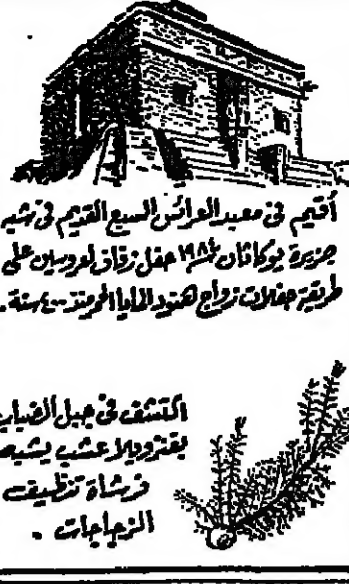 أقيم في معبد العرائس السبع القديم في شبه
جزيرة يوكاتان حفل زفاف لعروسين على
طريقة حفلات زواج هنود المايا الحمر منذ ٤٠٠ سنة.
اكتشف في جبل الضباب
بفنزويلا عشب يشبه
فرشاة تنظيف
الزجاجات .